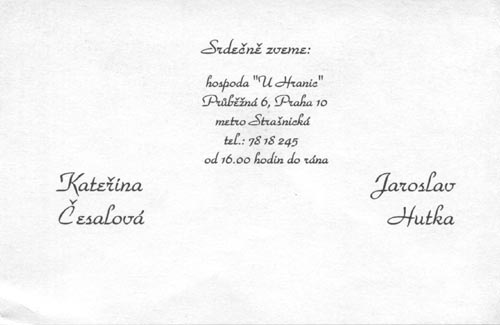 Srdečně zveme:
hospoda "U Hranic"
Průběžná 6, Praha 10
metro Strašnická
tel.: 78 18 245
od 16.00 hodin do rána
Kateřina
Česalová
Jaroslav
Hutka